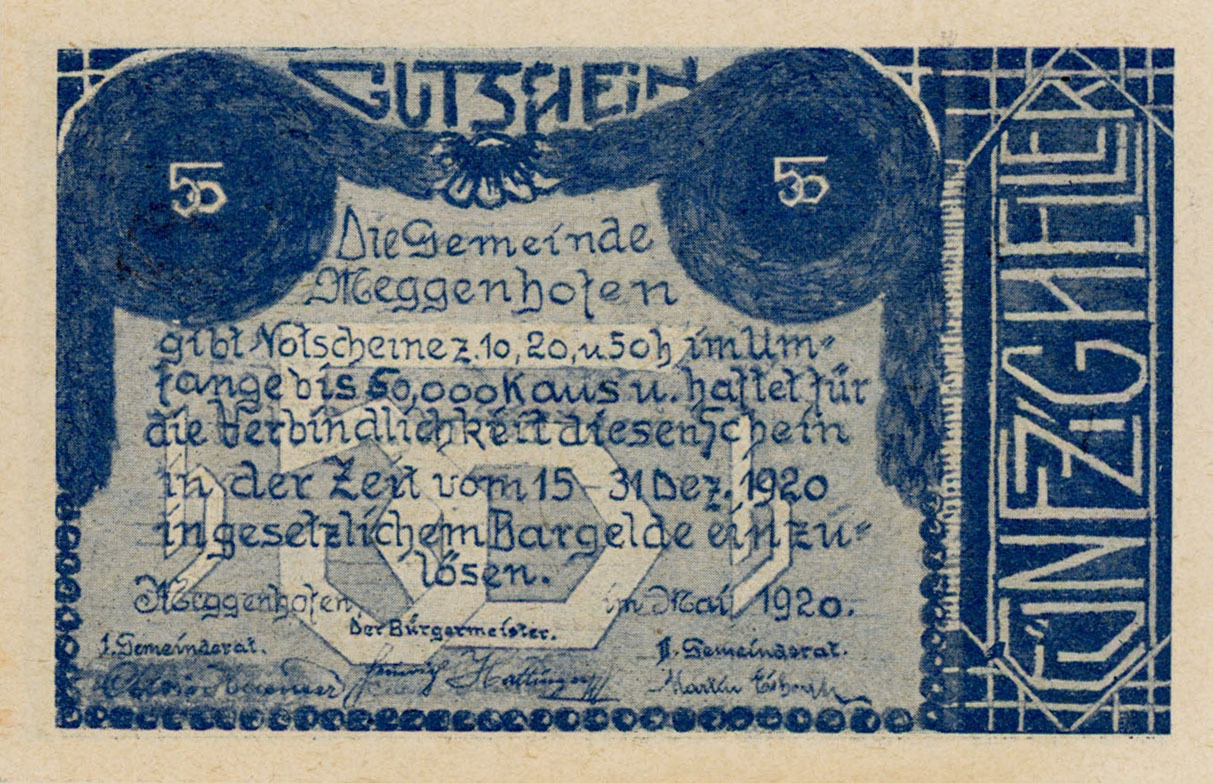 GUTSCHEIN
50
50
Die Gemeinde
Meggenhofen
gibt Notscheine z. 10, 20, u. 50 h im Um-
fange bis 60,000 K aus u. haftet für
die Verbindlichkeit diesen Schein
in der Zeit vom 15-31 Dez. 1920
in gesetzlichem Bargelde einzu-
lösen.
Meggenhofen, im Mai 1920.
Der Bürgermeister.
I. Gemeinderat. II. Gemeinderat.
Martin
FÜNFZIG HELLER